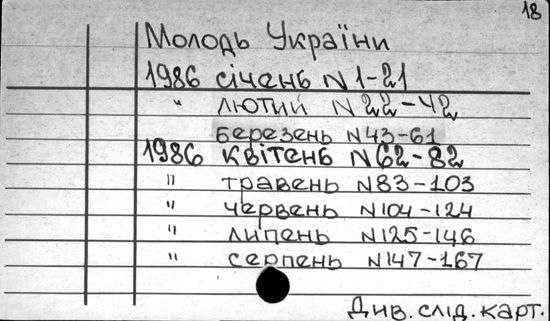 18
Молодь України
1986 січень N 1-21
" лютий N 22-42
березень N 43-61
1986 квітень N 62-82
" травень N 83-103
" червень N 104-124
" липень N 125-146
" серпень N 147-167
Див. слід. карт.